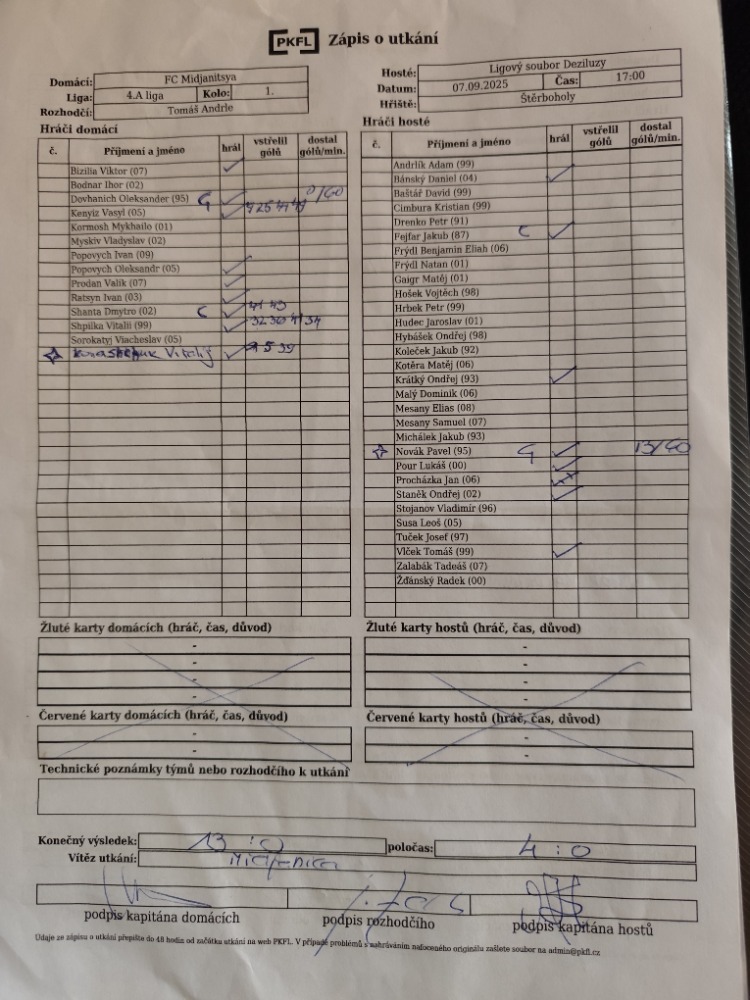 PKFL Zápis o utkání
Domácí: FC Midjanitsya
Liga: 4.A liga Kolo: 1.
Rozhodčí: Tomáš Andrle
Hosté: Ligový soubor Deziluzy
Datum: 07.09.2025 Čas: 17:00
Hřiště: Štěrboholy
Hráči domácí
č. Příjmení a jméno hrál vstřelil gólů dostal gólů/min.
Bizilia Viktor (07)
Bodnar Ihor (02)
Dovhanich Oleksander (95) G 0/60
Kenyiz Vasyl (05)
Kormosh Mykhailo (01)
Myskiv Vladyslav (02)
Popovych Ivan (09)
Popovych Oleksandr (05)
Prodan Valik (07)
Ratsyn Ivan (03)
Shanta Dmytro (02) C 41 43
Shpilka Vitalii (99)
Sorokatyj Viacheslav (05)
Vitalij
Hráči hosté
č. Příjmení a jméno hrál vstřelil gólů dostal gólů/min.
Andrlík Adam (99)
Bánský Daniel (04)
Baštář David (99)
Cimbura Kristian (99)
Drenko Petr (91)
Fejfar Jakub (87) C
Frýdl Benjamin Eliah (06)
Frýdl Natan (01)
Gaigr Matěj (01)
Hošek Vojtěch (98)
Hrbek Petr (99)
Hudec Jaroslav (01)
Hybášek Ondřej (98)
Koleček Jakub (92)
Kotěra Matěj (06)
Krátký Ondřej (93)
Malý Dominik (06)
Mesany Elias (08)
Mesany Samuel (07)
Michálek Jakub (93)
Novák Pavel (95) G 13/60
Pour Lukáš (00)
Procházka Jan (06)
Staněk Ondřej (02)
Stojanov Vladimír (96)
Susa Leoš (05)
Tuček Josef (97)
Vlček Tomáš (99)
Zalabák Tadeáš (07)
Žďánský Radek (00)
Žluté karty domácích (hráč, čas, důvod)
-
-
-
-
Žluté karty hostů (hráč, čas, důvod)
-
-
-
-
Červené karty domácích (hráč, čas, důvod)
-
-
Červené karty hostů (hráč, čas, důvod)
-
-
Technické poznámky týmů nebo rozhodčího k utkání
Konečný výsledek: 13 : 0 poločas: 4 : 0
Vítěz utkání:
podpis kapitána domácích podpis rozhodčího podpis kapitána hostů
Údaje ze zápisu o utkání přepište do 48 hodin od začátku utkání na web PKFL. V případě problémů s nahráváním nafoceného originálu zašlete soubor na admin@pkfl.cz